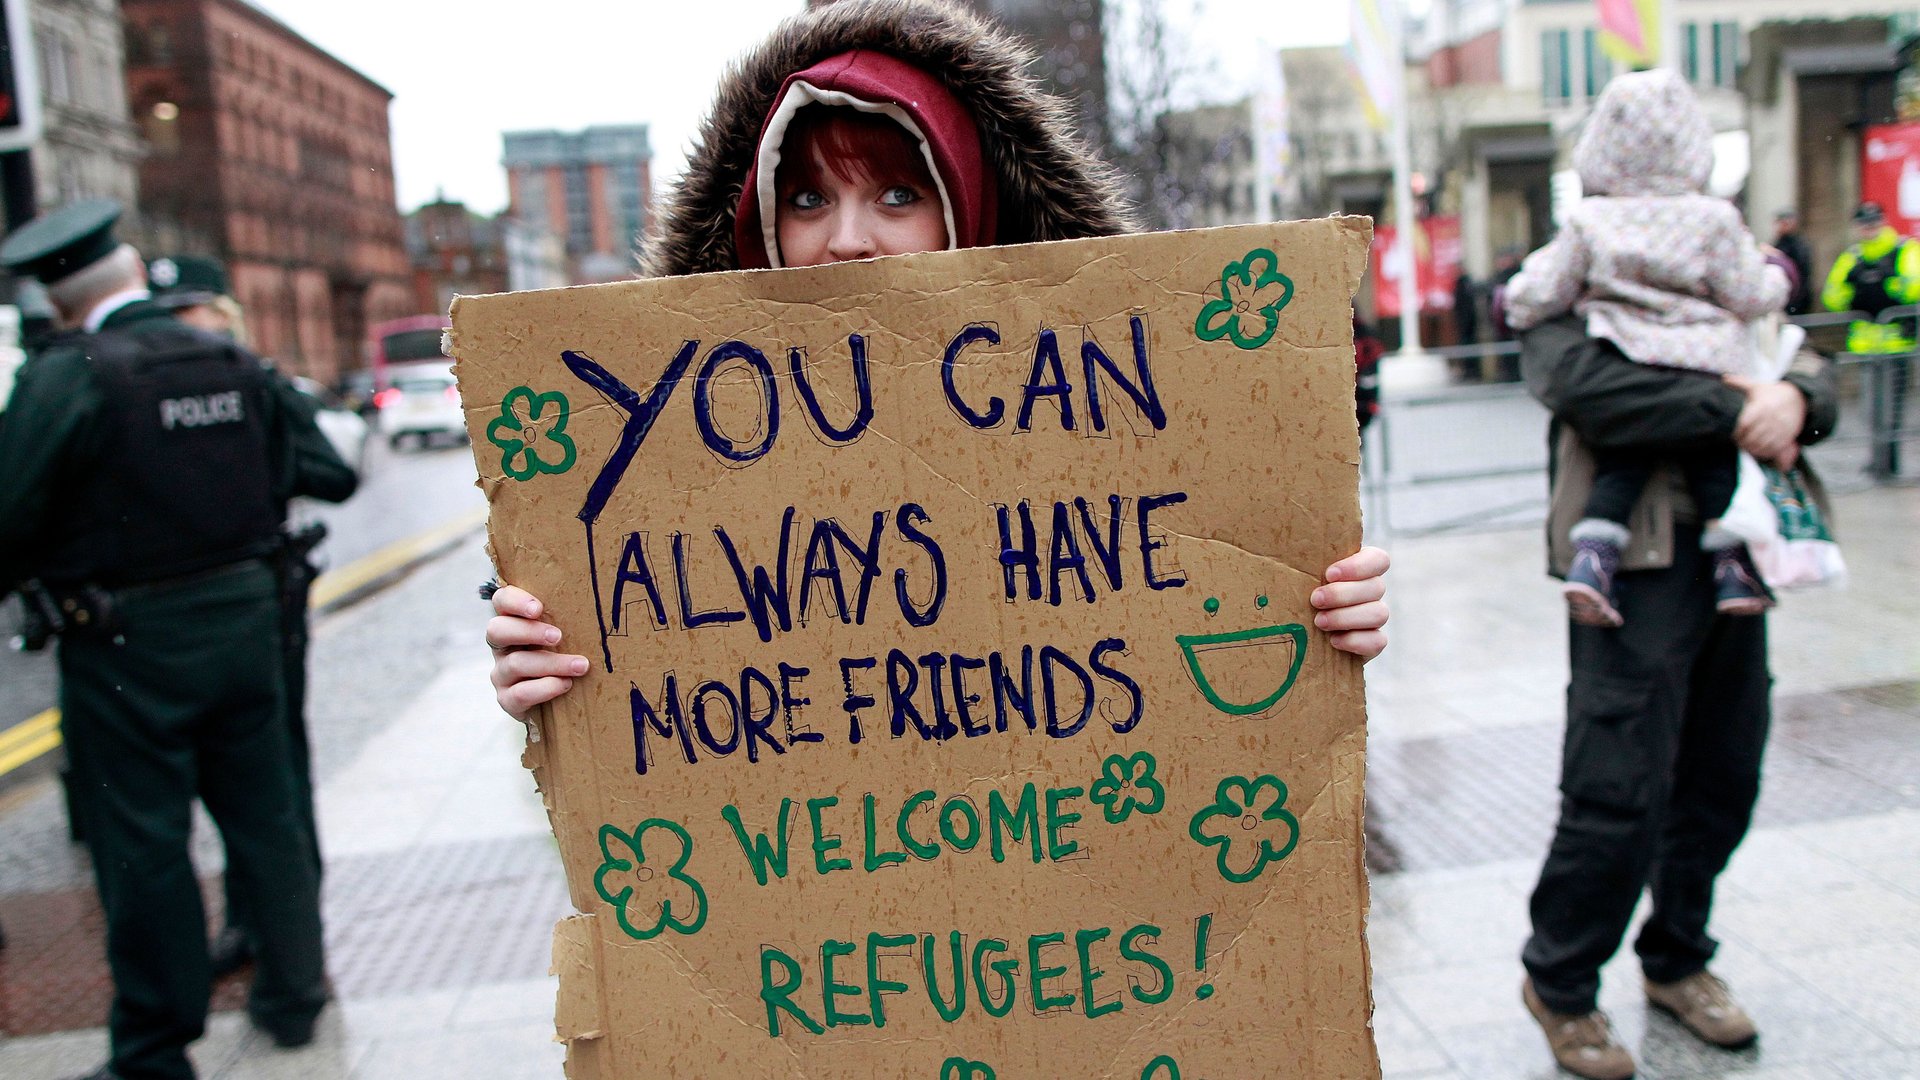 POLICE
YOU CAN
ALWAYS HAVE
MORE FRIENDS
WELCOME
REFUGEES!